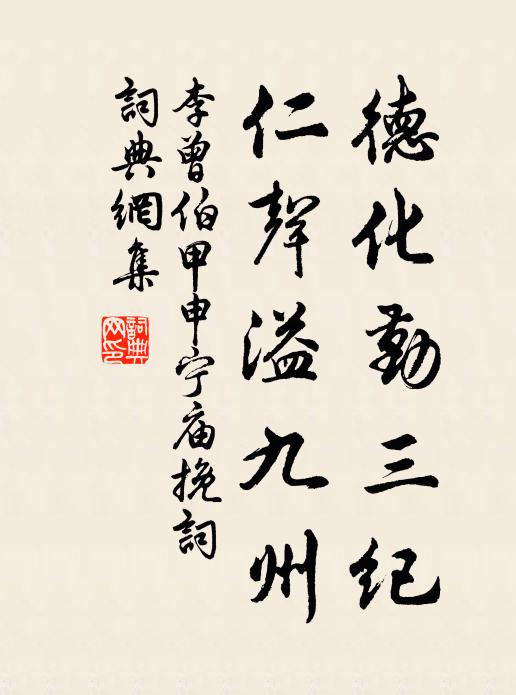 德化勤三纪
仁聲溢九州
李曾伯甲申宁庙挽詞
詞典網集
詞典網印